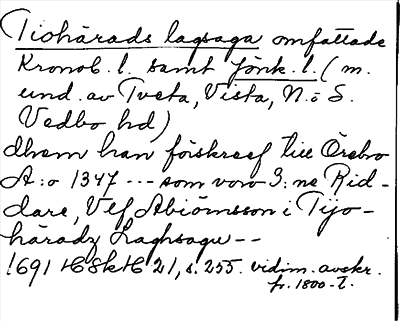 Tiohärads lagsaga omfattade
Kronob. l. samt Jönk. l. (m.
und. av Tveta, Vista, N. o S.
Vedbo hd)
dhem han förskreef till Örebro
A:o 1347 --- som voro 3:ne Rid-
dare, Ulf Abiörnsson i Tijo-
häradz Laghsagu --
1691 HSkH 21, s. 255. vidim. avskr.
fr. 1800-t.